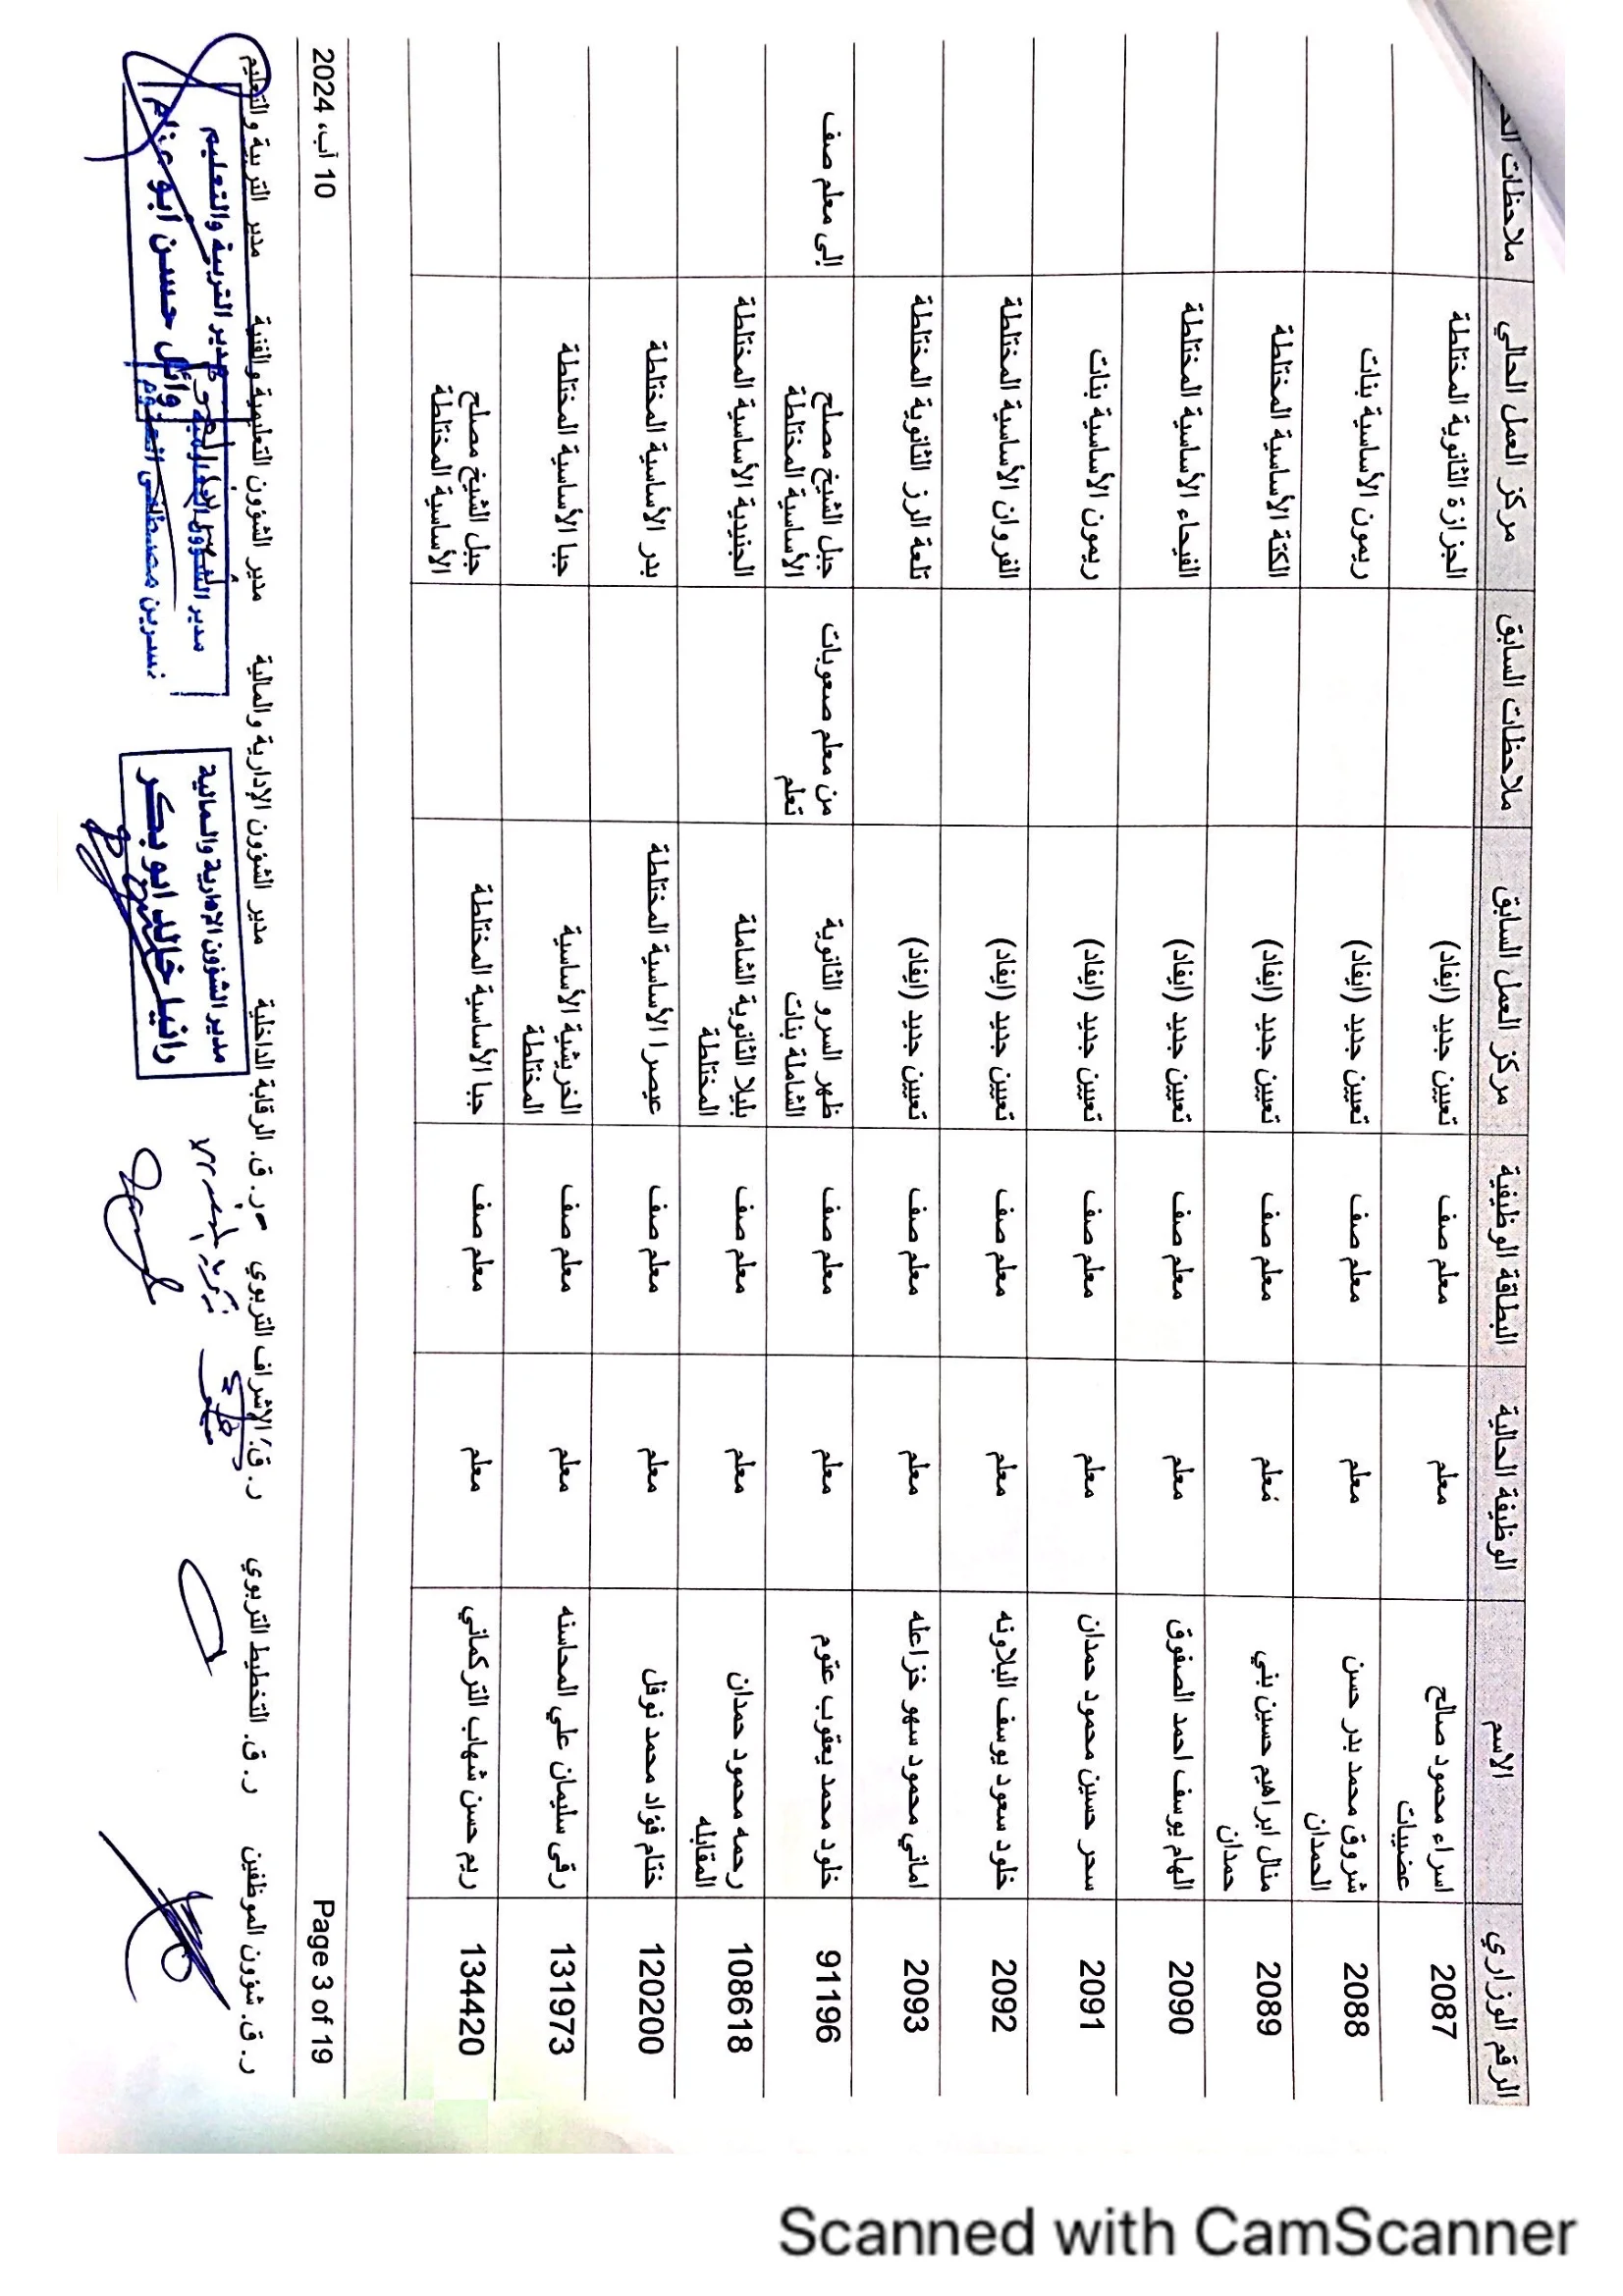 الرقم الوزاري الاسم الوظيفة الحالية البطاقة الوظيفية مركز العمل السابق ملاحظات السابق مركز العمل الحالي ملاحظات
2087 اسراء محمود صالح عضيبات معلم معلم صف تعيين جديد (ايفاد) الجزازة الثانوية المختلطة
2088 شروق محمد بدر حسن الحمدان معلم معلم صف تعيين جديد (ايفاد) ريمون الأساسية بنات
2089 منال ابراهيم حسين بني حمدان معلم معلم صف تعيين جديد (ايفاد) الكتة الأساسية المختلطة
2090 الهام يوسف احمد الصفوق معلم معلم صف تعيين جديد (ايفاد) الفيحاء الأساسية المختلطة
2091 سحر حسين محمود حمدان معلم معلم صف تعيين جديد (ايفاد) ريمون الأساسية بنات
2092 خلود سعود يوسف البلاونه معلم معلم صف تعيين جديد (ايفاد) الفروان الأساسية المختلطة
2093 اماني محمود سهو خزاعله معلم معلم صف تعيين جديد (ايفاد) تلعة الرز الثانوية المختلطة
91196 خلود محمد يعقوب عتوم معلم معلم صف ظهر السرو الثانوية الشاملة بنات من معلم صعوبات تعلم جبل الشيخ مصلح الأساسية المختلطة إلى معلم صف
108618 رحمه محمود حمدان المقابله معلم معلم صف بليلا الثانوية الشاملة المختلطة الجنيدية الأساسية المختلطة
120200 ختام فؤاد محمد نوفل معلم معلم صف عيصرا الأساسية المختلطة بدر الأساسية المختلطة
131973 رقى سليمان علي المحاسنه معلم معلم صف الخريشية الأساسية المختلطة جبا الأساسية المختلطة
134420 ريم حسن شهاب التركماني معلم معلم صف جبا الأساسية المختلطة جبل الشيخ مصلح الأساسية المختلطة
Page 3 of 19 10 آب، 2024
ر. ق. شؤون الموظفين ر. ق. التخطيط التربوي ر. ق. الإشراف التربوي ر. ق. الرقابة الداخلية مدير الشؤون الإدارية والمالية مدير الشؤون التعليمية والفنية مدير التربية والتعليم
مدير الشؤون الإدارية والمالية
رانيا خالد ابو بكر
مدير التربية والتعليم
وائل حسن أبو عزام
نسرين مصطفى العتوم
Scanned with CamScanner